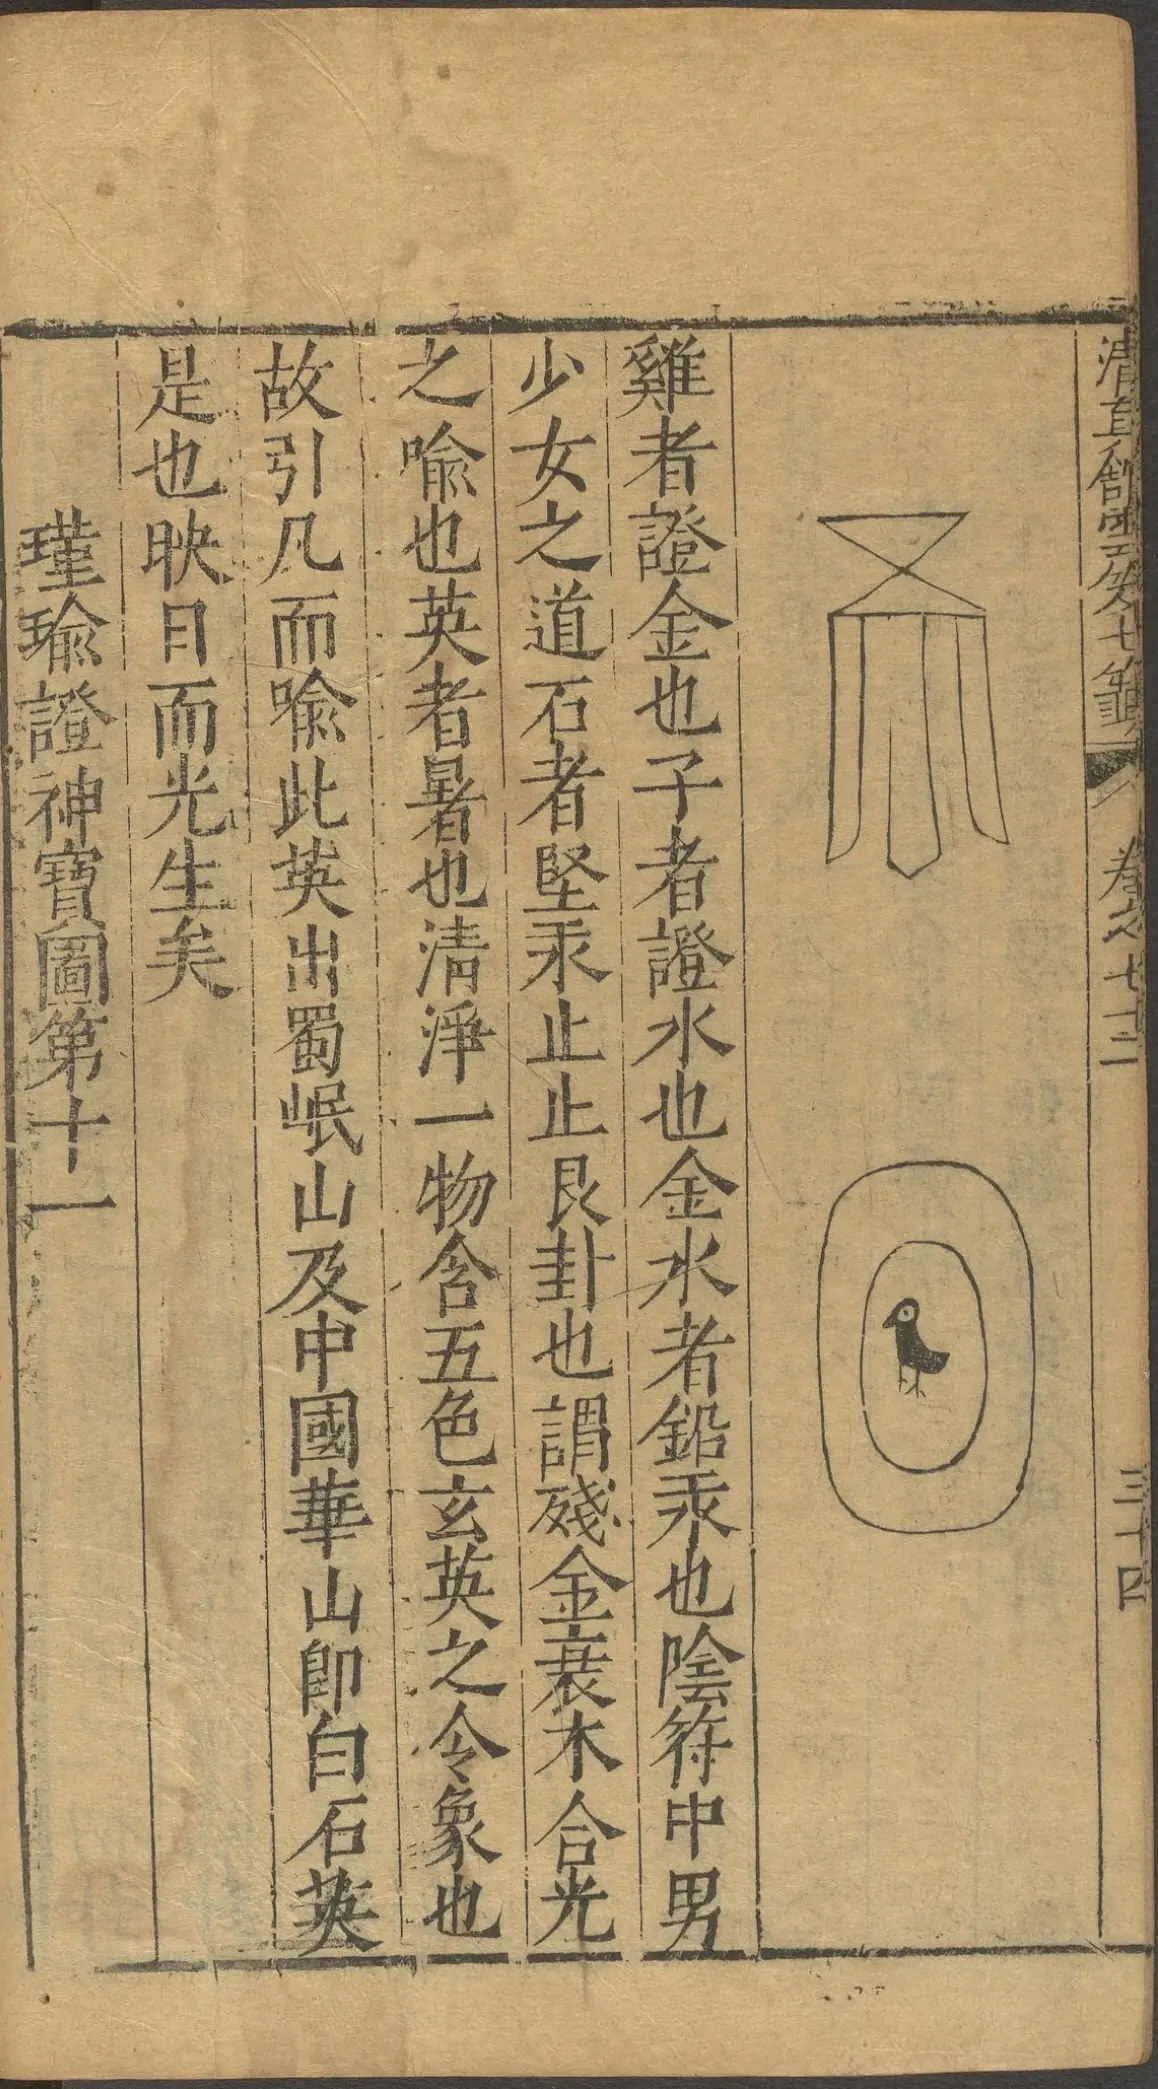 卷之七十二
三十四
雞者證金也子者證水也金水者鉛汞也陰符中男
少女之道石者堅汞止止艮卦也謂殘金衰木合光
之喻也英者暑也清淨一物含五色玄英之令象也
故引凡而喻此英出蜀岷山及中國華山卽白石英
是也映日而光生矣
瑾瑜證神寶圖第十一